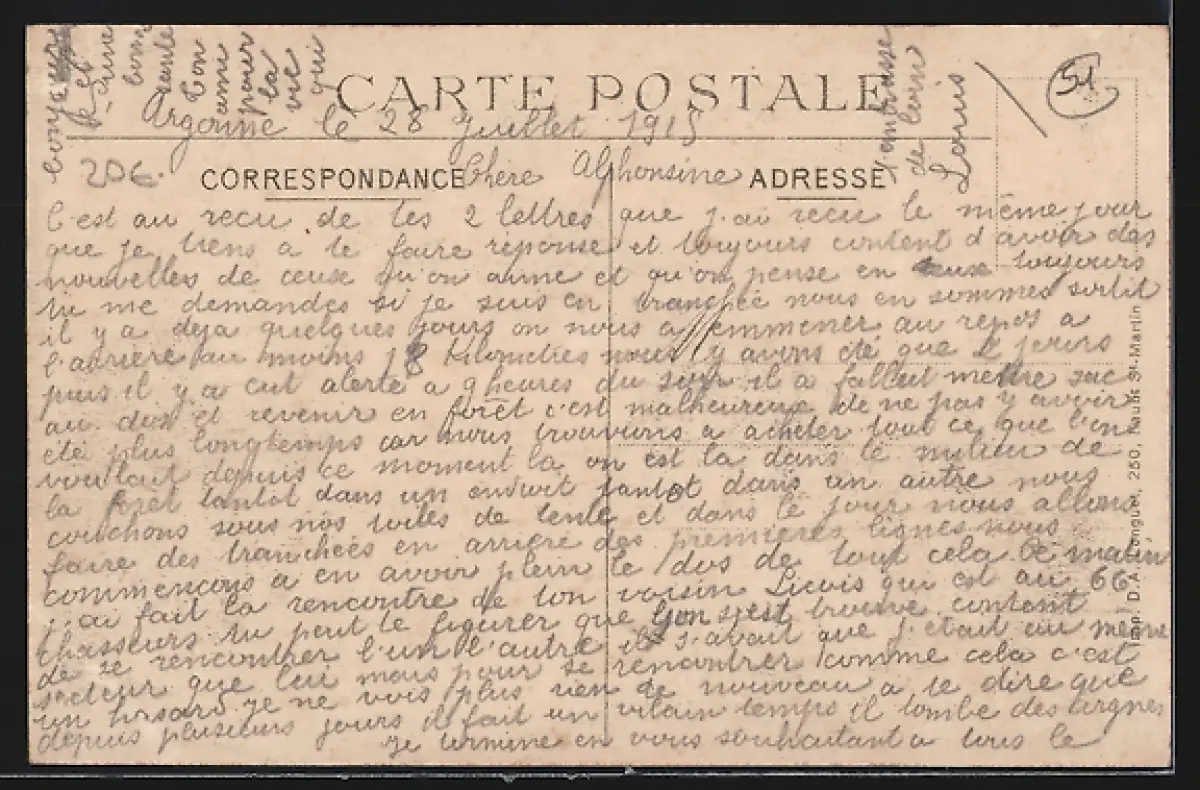 CARTE POSTALE
Argonne le 28 Juillet 1915
51
20€.
CORRESPONDANCE
Chère Alphonsine
ADRESSE
C'est au recu de tes 2 lettres que j'ai recu le meme jour
que je tiens a te faire reponse et toujours content d'avoir des
nouvelles de ceuse qu'on aime et qu'on pense en toujours
tu me demandes si je suis en tranchée nous en sommes sortit
il y a deja quelques jours on nous a emmener au repos a
l'arriere au moins 18 kilometres nous y avons été que 2 jours
puis il y a eut alerte a 9 heures du soir il a fallut mettre sac
au dos et revenir en foret c'est malheureux de ne pas y avoir
été plus longtemps car nous trouvions a acheter tout ce que l'on
voulait depuis ce moment la on est la dans le milieu de
la foret tantot dans un endroit tantot dans un autre nous
couchons sous nos toiles de tente et dans le jour nous allons
faire des tranchées en arriere des premieres lignes nous
commencons a en avoir plein le dos de tout cela Ce matin
j'ai fait la rencontre de ton voisin qui est au 66
chasseurs tu peut te figurer que l'on s'est trouvé content
de se rencontrer l'un l'autre il s'avait que j'etait au meme
secteur que lui mais pour se rencontrer comme cela c'est
un hasard je ne vois plus rien de nouveau a te dire que
depuis plusieurs jours il fait un vilain temps il tombe des
je termine en vous souhaitant a tous le
bonne
sante
Ton
ami
pour
la
vie
qui
t'embrasse
de loin
Louis
Imp. D.A. Longuet, 250, Faub St-Martin